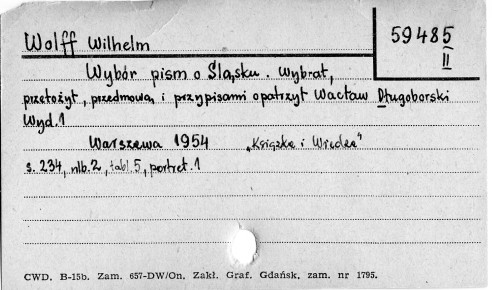 Wolff Wilhelm
59485
II
Wybór pism o Śląsku. Wybrał,
przełożył, przedmową i przypisami opatrzył Wacław Długoborski
Wyd.1
Warszawa 1954 „Książka i Wiedza"
s. 234, nlb. 2, tabl. 5, portret. 1
CWD. B-15b. Zam. 657-DW/On. Zakł. Graf. Gdańsk, zam. nr 1795.